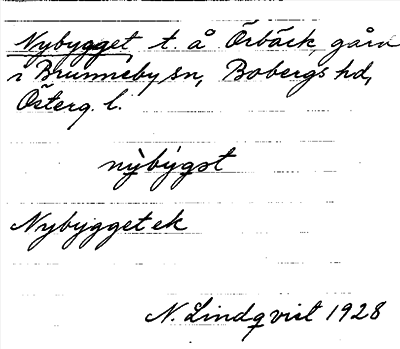 Nybygget, t. å Örbäck, gård
i Brunneby sn, Bobergs hd,
Österg. l.
nỳbýgst
Nybygget ek
N. Lindqvist 1928